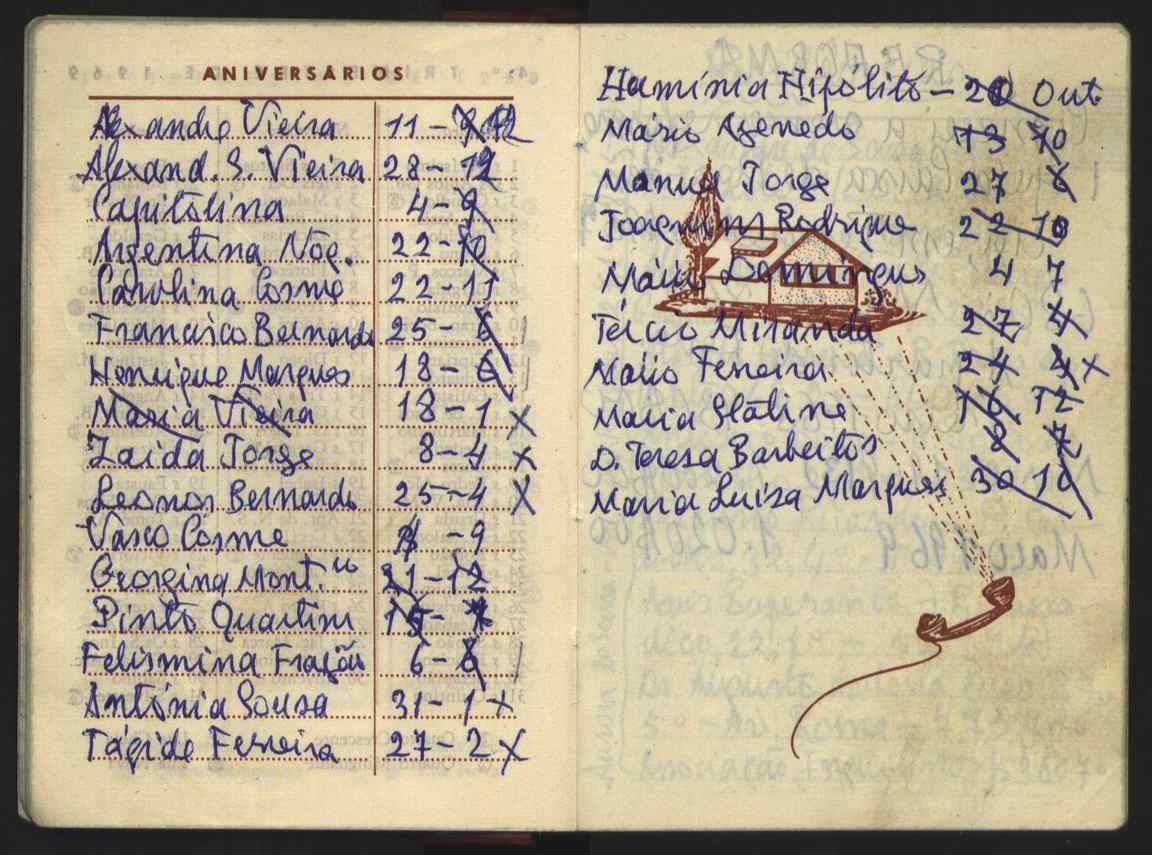 ANIVERSÁRIOS
Alexandre Vieira 11 -
Alexand. S. Vieira 28 - 12
Capitolina 4 - 9
Argentina Nóg. 22 - 10
Carolina Cosme 22 - 11
Francisco Bernardo 25 - 6
Henrique Marques 18 - 6
Maria Vieira 18 - 1 X
Zaida Jorge 8 - 4 X
Leonor Bernardo 25 - 4 X
Vasco Cosme - 9
Georgina Mont.ro 21 - 12
Pinto Quartim 15 -
Felismina Frazão 6 - 8
Antónia Sousa 31 - 1 X
Tágide Ferreira 27 - 2 X
Hermínia Hipólito - 20 Out
Mário Azenedo 13 10
Manuel Jorge 27 6
Joaquim Rodrigue 22 10
Mário Domingues 4 7
Tércio Miranda 27 4
Mário Ferreira 24 4 X
Maria Stätine 16 12
D. Teresa Barbeitos 9 7
Maria Luiza Marques 30 10